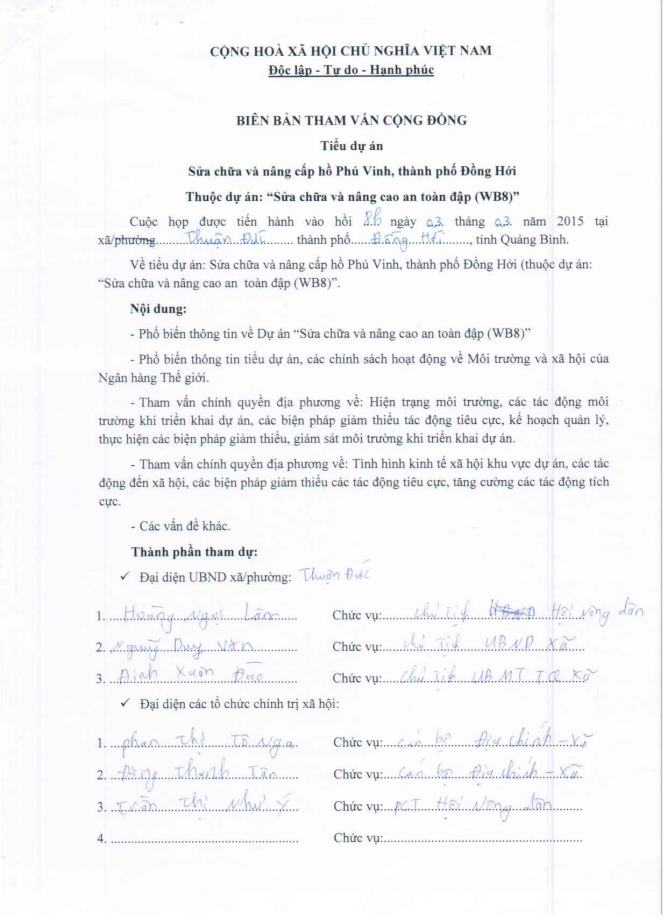 CỘNG HOÀ XÃ HỘI CHỦ NGHĨA VIỆT NAM
Độc lập - Tự do - Hạnh phúc
BIÊN BẢN THAM VẤN CỘNG ĐỒNG
Tiểu dự án
Sửa chữa và nâng cấp hồ Phú Vinh, thành phố Đồng Hới
Thuộc dự án: “Sửa chữa và nâng cao an toàn đập (WB8)”
Cuộc họp được tiến hành vào hồi 8h ngày 03 tháng 03 năm 2015 tại
xã/phường Thuận Đức thành phố Đồng Hới, tỉnh Quảng Bình.
Về tiểu dự án: Sửa chữa và nâng cấp hồ Phú Vinh, thành phố Đồng Hới (thuộc dự án:
“Sửa chữa và nâng cao an toàn đập (WB8)”.
Nội dung:
- Phổ biến thông tin về Dự án “Sửa chữa và nâng cao an toàn đập (WB8)”
- Phổ biến thông tin tiểu dự án, các chính sách hoạt động về Môi trường và xã hội của
Ngân hàng Thế giới.
- Tham vấn chính quyền địa phương về: Hiện trạng môi trường, các tác động môi
trường khi triển khai dự án, các biện pháp giảm thiểu tác động tiêu cực, kế hoạch quản lý,
thực hiện các biện pháp giảm thiểu, giám sát môi trường khi triển khai dự án.
- Tham vấn chính quyền địa phương về: Tình hình kinh tế xã hội khu vực dự án, các tác
động đến xã hội, các biện pháp giảm thiểu các tác động tiêu cực, tăng cường các tác động tích
cực.
- Các vấn đề khác.
Thành phần tham dự:
✓ Đại diện UBND xã/phường: Thuận Đức
1. Hoàng Ngọc Lâm Chức vụ: Chủ tịch Hội nông dân
2. Nguyễn Duy Văn Chức vụ: Chủ tịch UBND Xã
3. Đinh Xuân Đào Chức vụ: Chủ tịch UB MT TQ Xã
✓ Đại diện các tổ chức chính trị xã hội:
1. Phan Thị Tô Nga Chức vụ: Cán bộ Địa chính - Xã
2. Thanh Tân Chức vụ: Cán bộ Địa chính - Xã
3. Trần Thị Như Ý Chức vụ: PCT Hội Nông dân
4. Chức vụ: